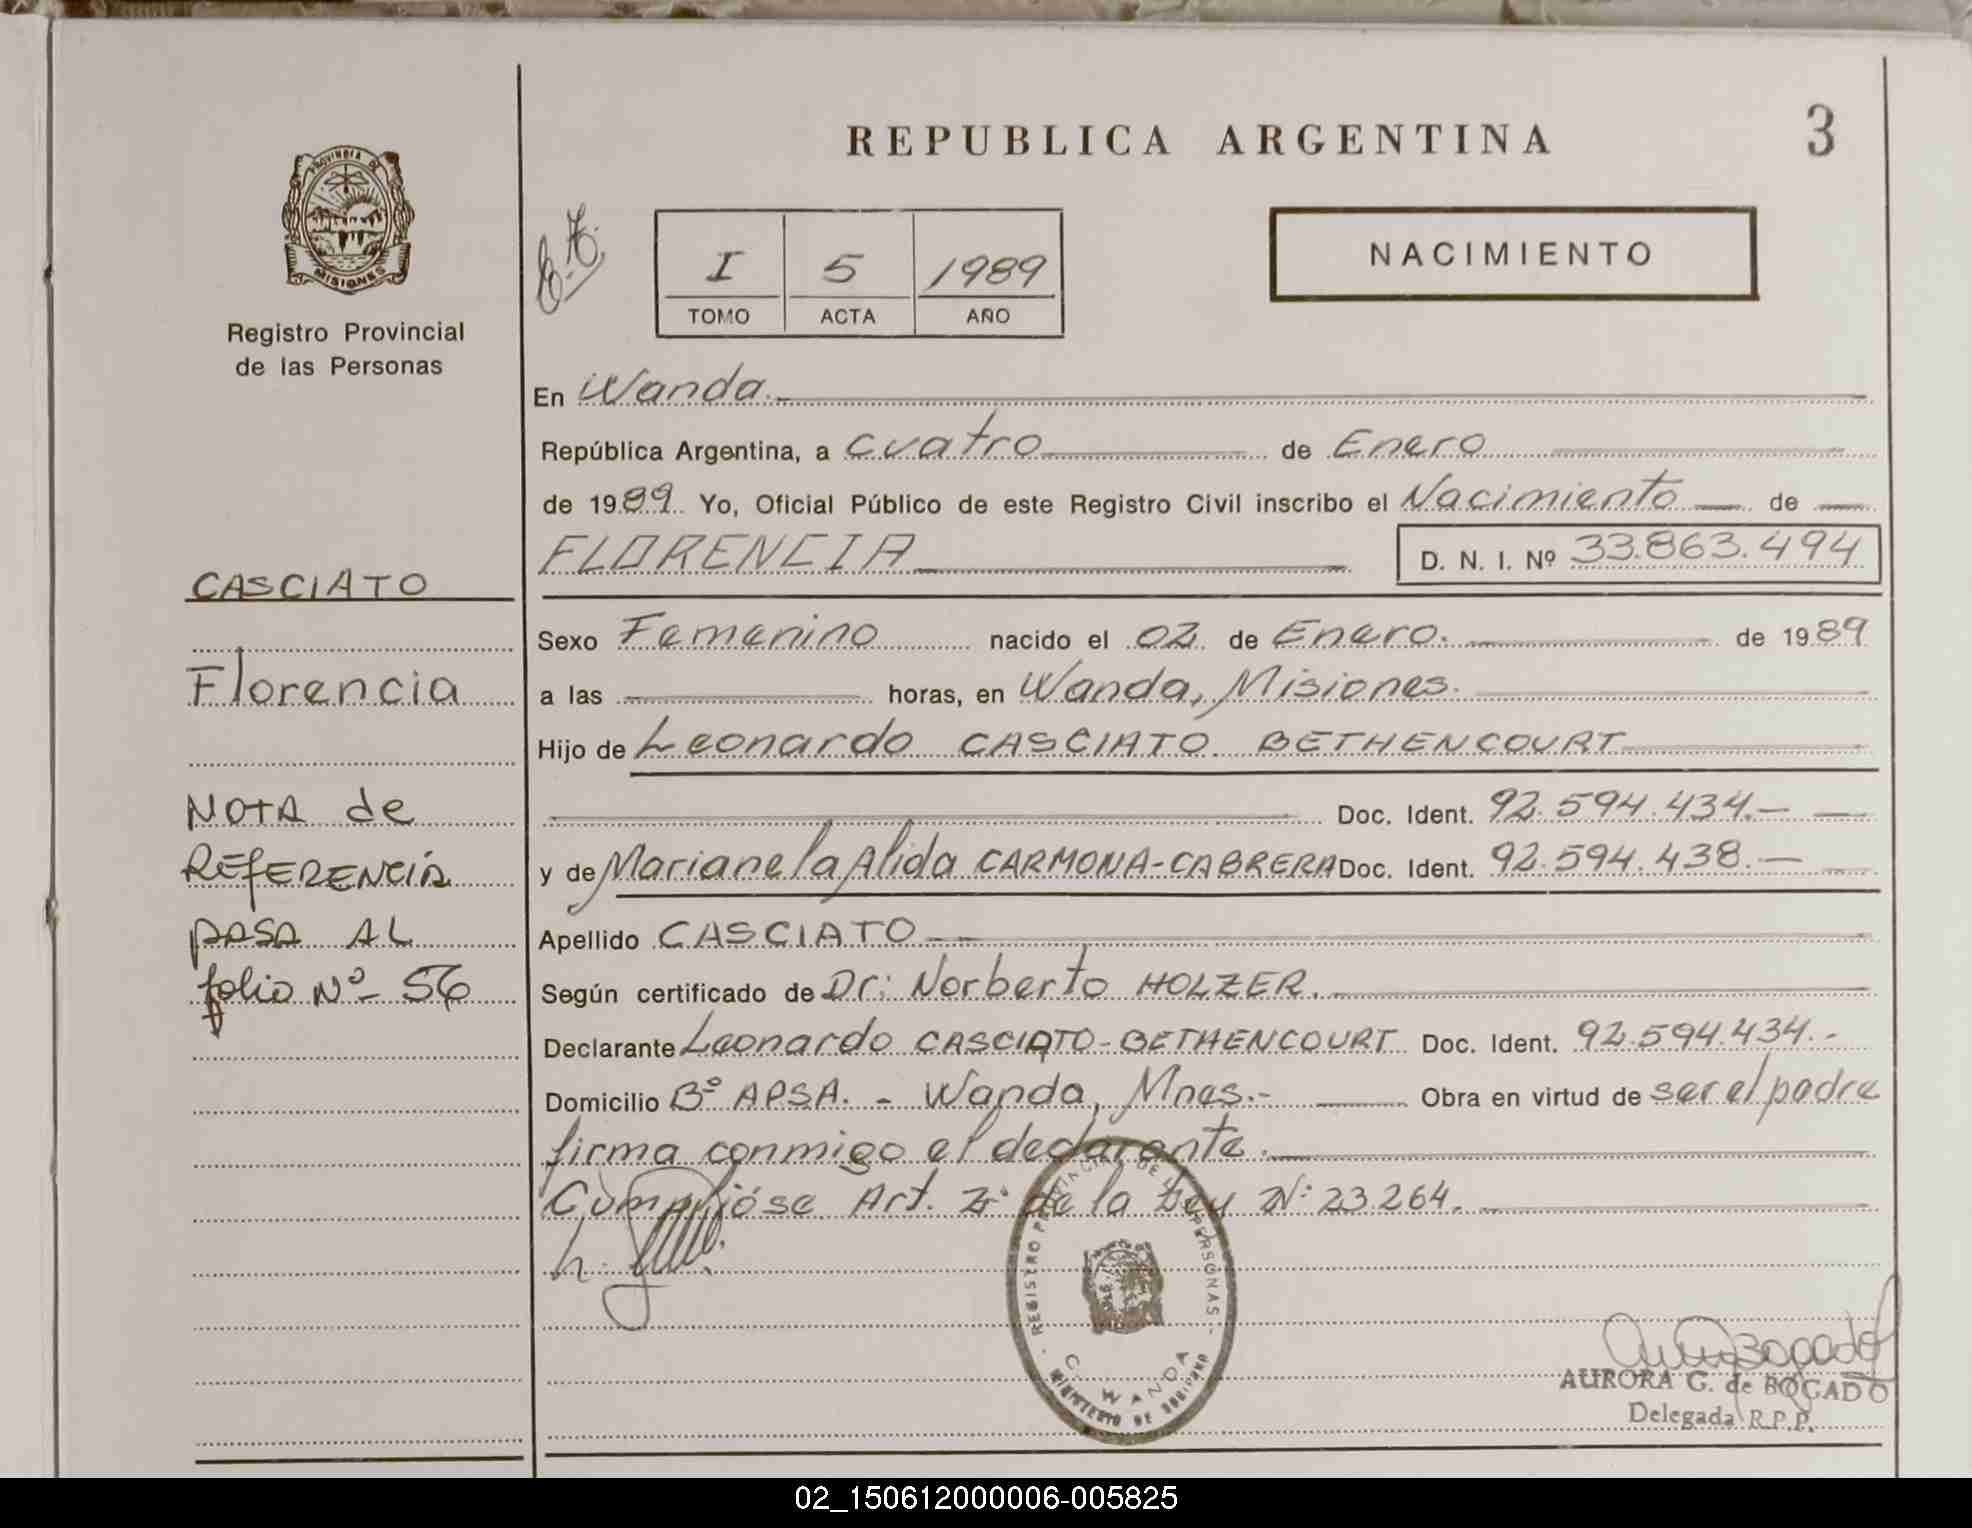 PROVINCIA DE
MISIONES
Registro Provincial
de las Personas
CASCIATO
Florencia
NOTA de
REFERENCIA
pasa AL
folio Nº- 56
REPUBLICA ARGENTINA
3
I 5 1989
TOMO ACTA AÑO
NACIMIENTO
En Wanda.-
República Argentina, a cuatro de Enero
de 1989. Yo, Oficial Público de este Registro Civil inscribo el Nacimiento de
FLORENCIA D. N. I. Nº 33.863.494
Sexo Femenino nacido el 02 de Enero. de 1989
a las horas, en Wanda, Misiones.
Hijo de Leonardo CASCIATO BETHENCOURT
Doc. Ident. 92.594.434.-
y de Marianela Alida CARMONA-CABRERA Doc. Ident. 92.594.438.-
Apellido CASCIATO
Según certificado de Dr: Norberto HOLZER.
Declarante Leonardo CASCIATO-BETHENCOURT Doc. Ident. 92.594.434.-
Domicilio Bº APSA. - Wanda, Mnes.- Obra en virtud de ser el padre
firma conmigo el declarante.
Cumplióse Art. de la Ley Nº 23.264.
REGISTRO PROVINCIAL DE LAS PERSONAS
WANDA
MINISTERIO DE GOBIERNO
AURORA G. de BOGADO
Delegada R.P.P.
02_150612000006-005825